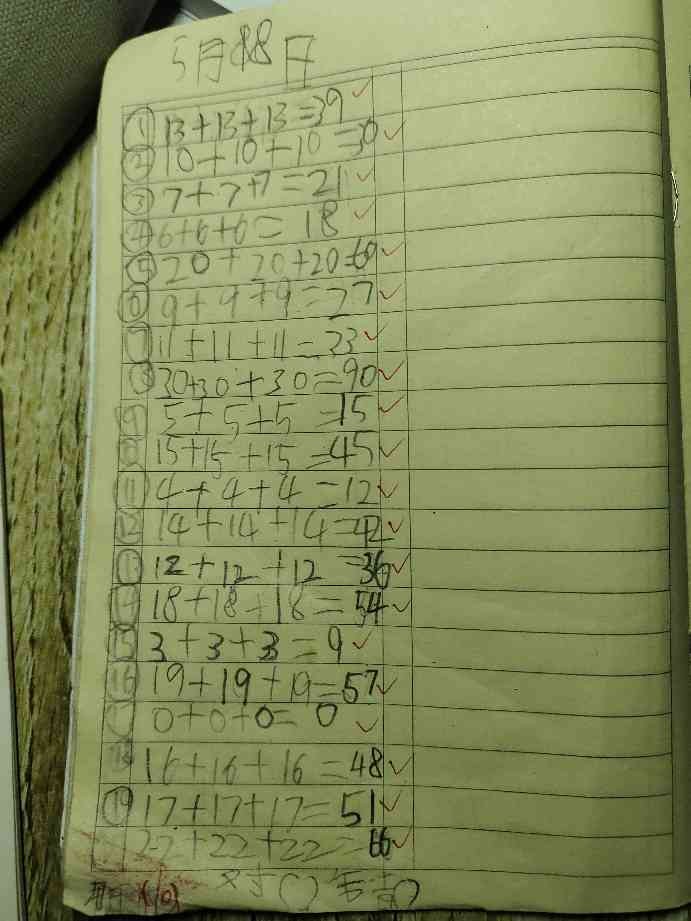 5月18日
① 13+13+13=39
② 10+10+10=30
③ 7+7+7=21
④ 6+6+6=18
⑤ 20+20+20=60
⑥ 9+9+9=27
⑦ 11+11+11=23
⑧ 30+30+30=90
⑨ 5+5+5=15
⑩ 15+15+15=45
⑪ 4+4+4=12
⑫ 14+14+14=42
⑬ 12+12+12=36
⑭ 18+18+18=54
⑮ 3+3+3=9
⑯ 19+19+19=57
⑰ 0+0+0=0
⑱ 16+16+16=48
⑲ 17+17+17=51
22+22+22=66